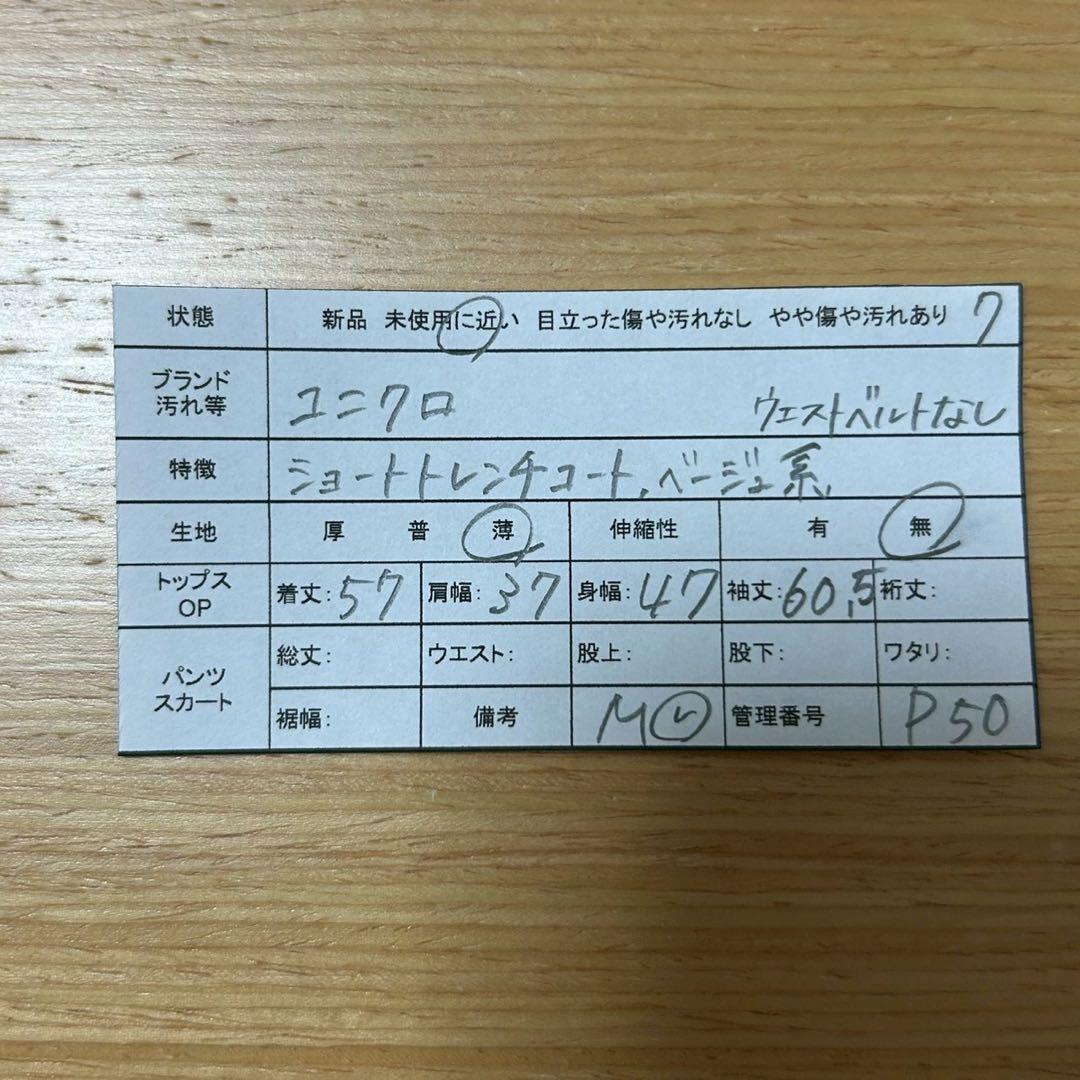 状態 新品 未使用に近い 目立った傷や汚れなし やや傷や汚れあり 7
ブランド 汚れ等 ユニクロ ウエストベルトなし
特徴 ショートトレンチコート、ベージュ系、
生地 厚 普 薄 伸縮性 有 無
トップス OP 着丈:57 肩幅:37 身幅:47 袖丈:60.5 裄丈:
パンツ スカート 総丈: ウエスト: 股上: 股下: ワタリ:
裾幅: 備考 M 管理番号 P50